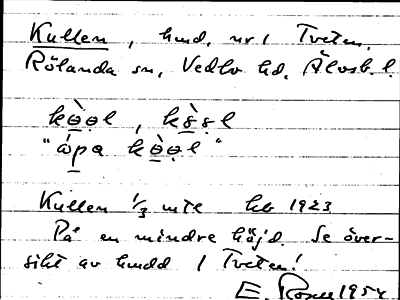 Kullen, hmd. nr 1 Tveten,
Rölanda sn, Vedbo hd, Älvsb. l.
kò̤ə̤l , ks̤̀s̤l
"ó̤pa kò̤ə̤l"
Kullen 1/3 mtl hb 1923
På en mindre höjd. Se över-
sikt av hmdd i Tveten!
E. 1954